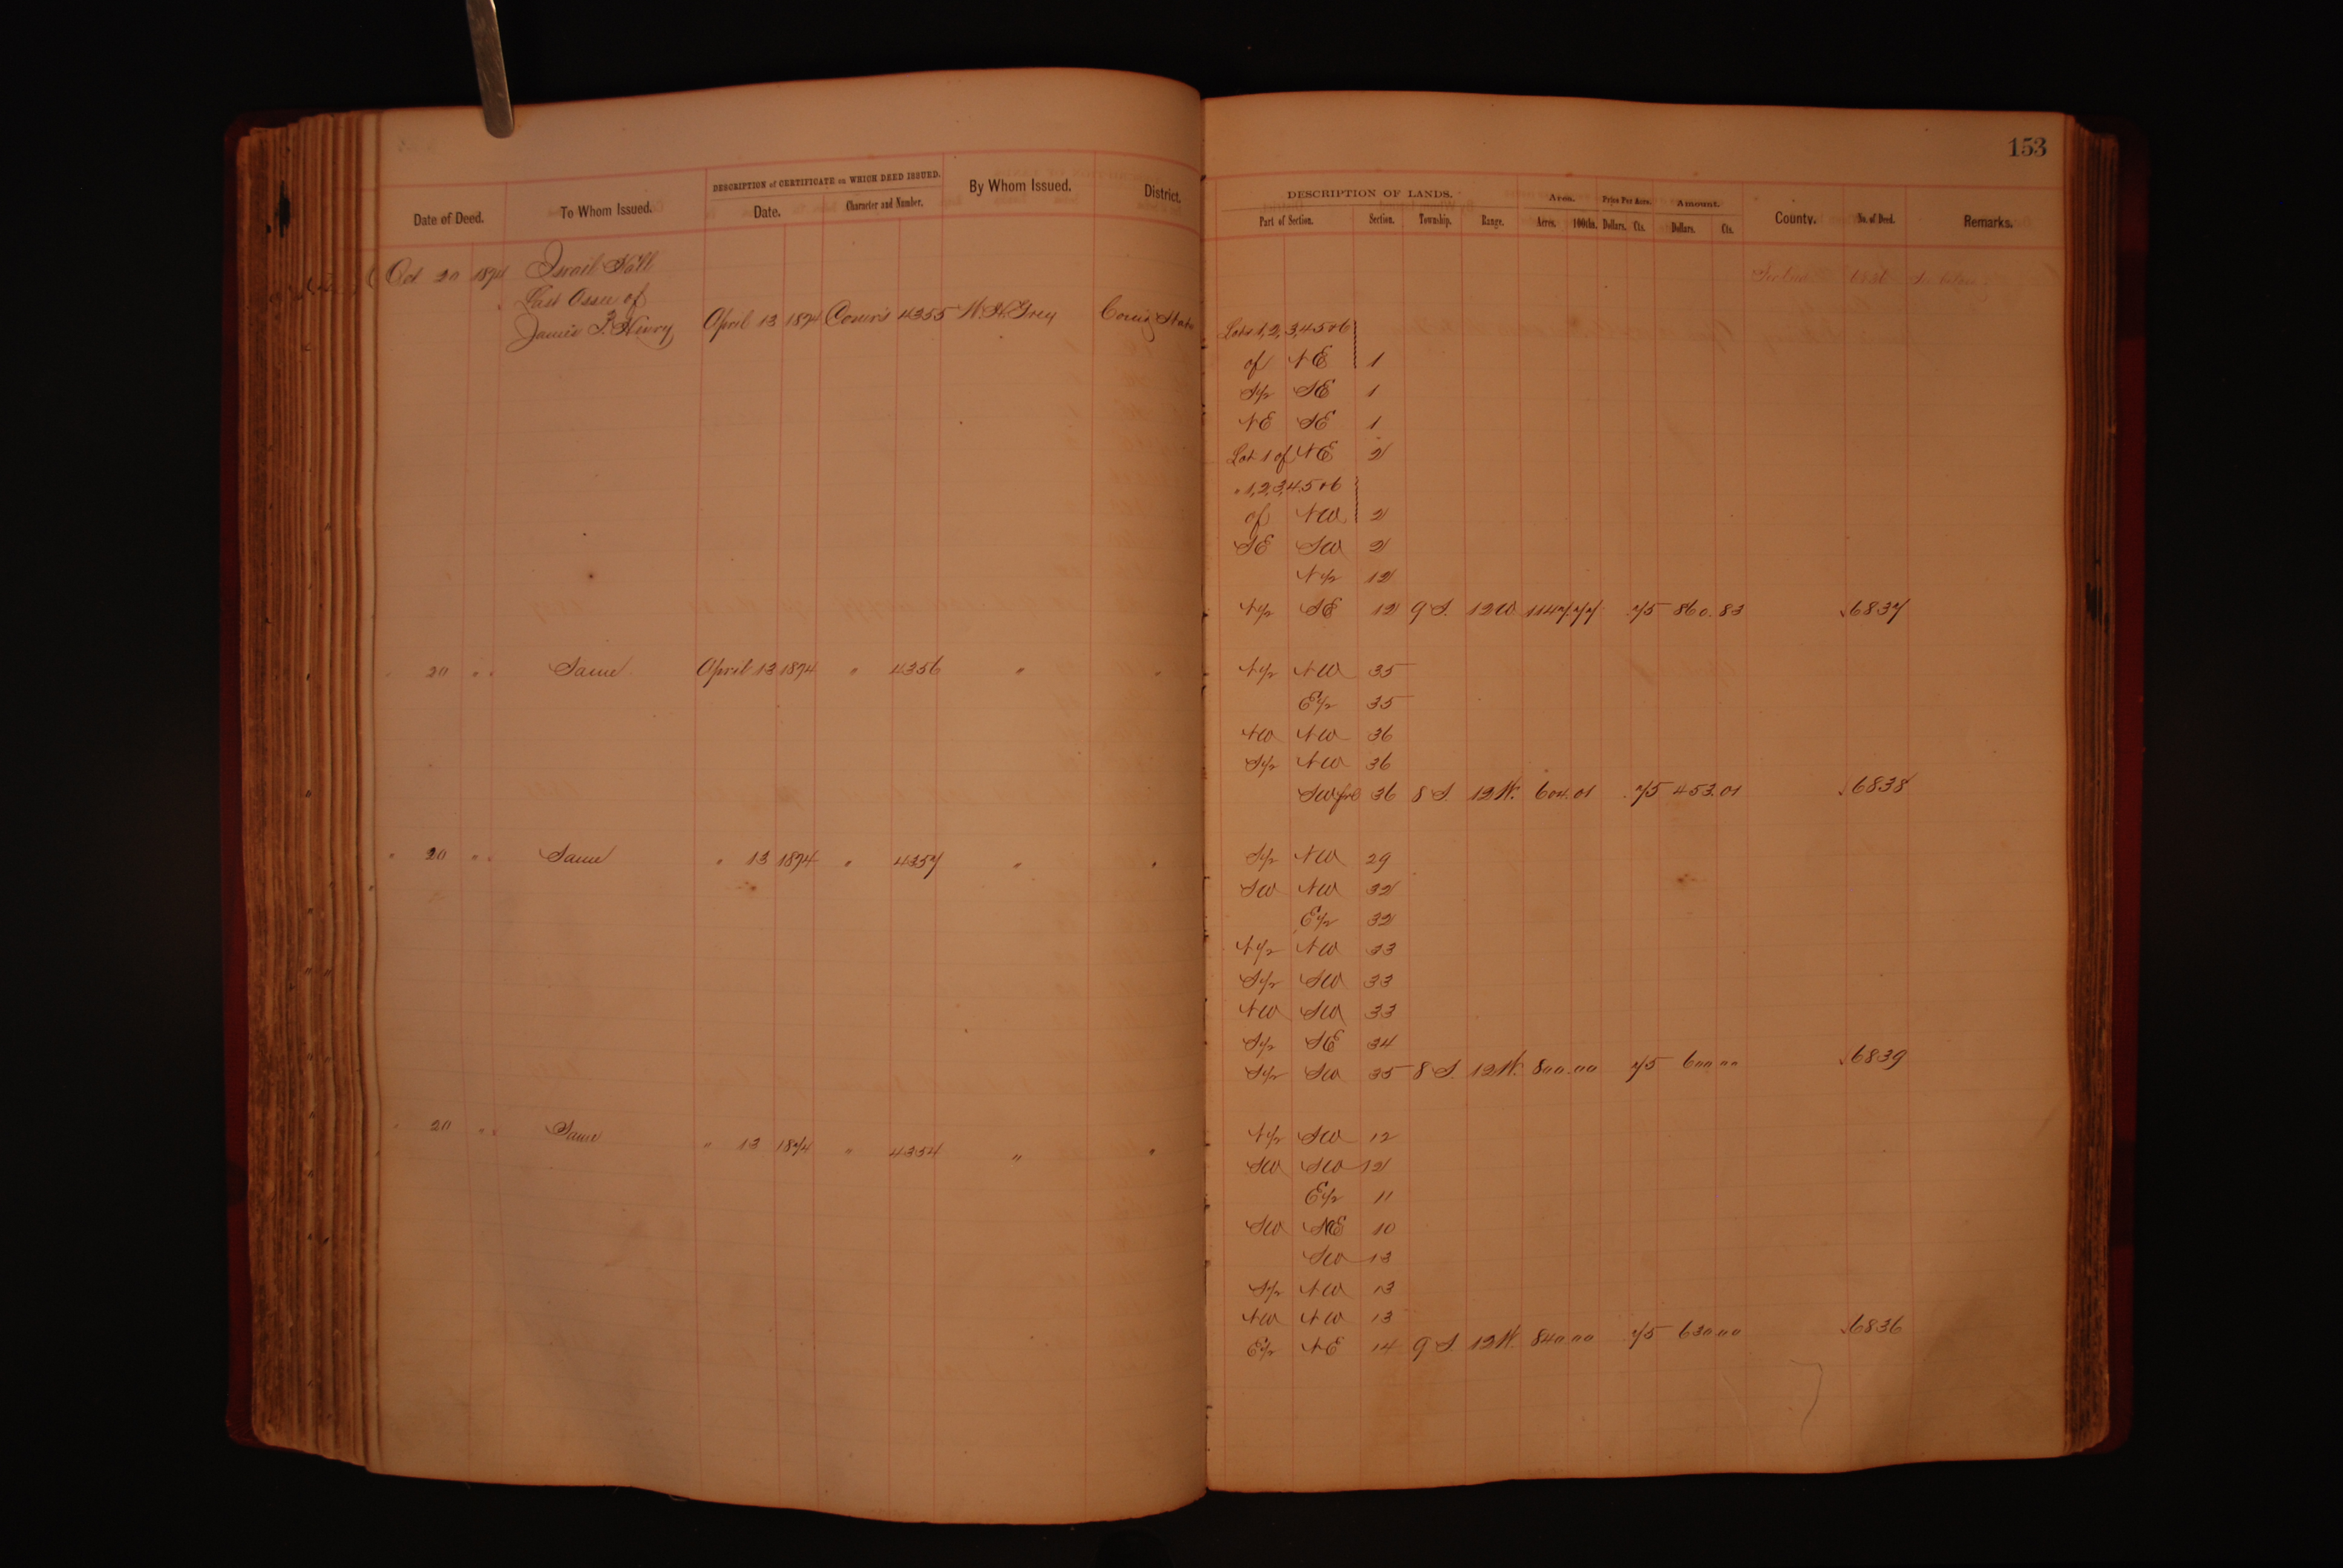 153
DESCRIPTION of CERTIFICATE on WHICH DEED ISSUED.
Date of Deed. To Whom Issued. Date. Character and Number. By Whom Issued. District.
DESCRIPTION OF LANDS. Area. Price Per Acre. Amount.
Part of Section. Section. Township. Range. Acres. 100ths. Dollars. Cts. Dollars. Cts. County. No. of Deed. Remarks.
Oct 20 1874 Israil Hall 6836
Last Assee of
James P. Henry April 13 1874 Comr's 4355 W. H. Grey Comr State Lots 1, 2, 3, 4, 5 & 6
of NE 1
S½ SE 1
NE SE 1
Lot 1 of NE 2
" 1, 2, 3, 4, 5 & 6
of NW 2
SE SW 2
N½ 12
N½ SE 12 9 S. 12 W 1147.77 .75 860.83 6837
" 20 " " Same April 13 1874 " 4356 " " N½ NW 35
E½ 35
NW NW 36
S½ NW 36
SW frl 36 8 S. 12 W. 604.01 .75 453.01 6838
" 20 " " Same " 13 1874 " 4357 " " S½ NW 29
SW NW 32
E½ 32
N½ NW 33
S½ SW 33
NW SW 33
S½ SE 34
S½ SW 35 8 S. 12 W. 800.00 75 600 00 6839
" 20 " " Same " 13 1874 " 4354 " " N½ SW 12
SW SW 12
E½ 11
SW 10
SW 13
S½ NW 13
NW NW 13
E½ NE 14 9 S. 12 W. 840 00 75 630 00 6836